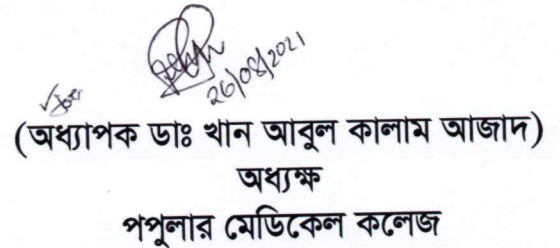 26/08/2021
(অধ্যাপক ডাঃ খান আবুল কালাম আজাদ)
অধ্যক্ষ
পপুলার মেডিকেল কলেজ